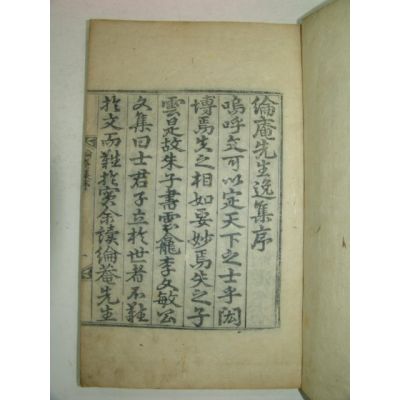 綸庵先生逸集序
嗚呼文可以定天下之士乎閎
博焉失之相如要妙焉失之子
雲是故朱子書雲龕李文敏公
文集曰士君子立於世者不難
於文而難於實余讀綸庵先生